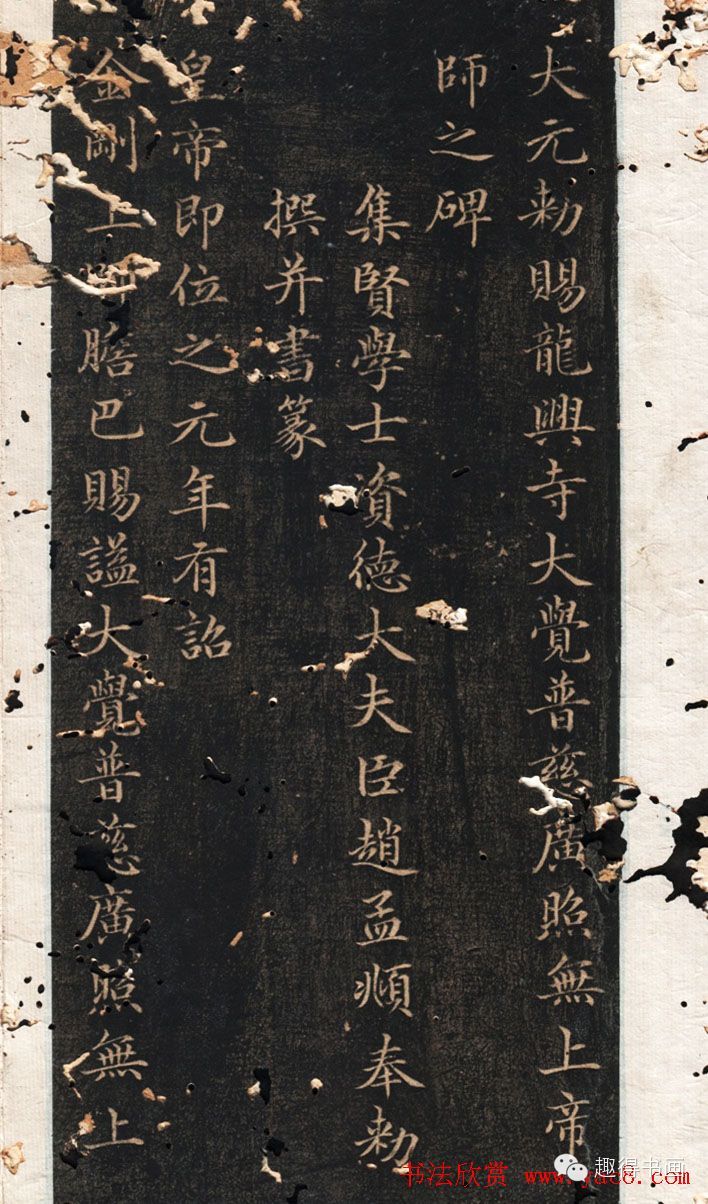 大元勅賜龍興寺大覺普慈廣照無上帝
師之碑
集賢學士資德大夫臣趙孟頫奉勅
撰并書篆
皇帝即位之元年有詔
金剛上師膽巴賜謚大覺普慈廣照無上
书法欣赏 www.yac8.com
趣得书画